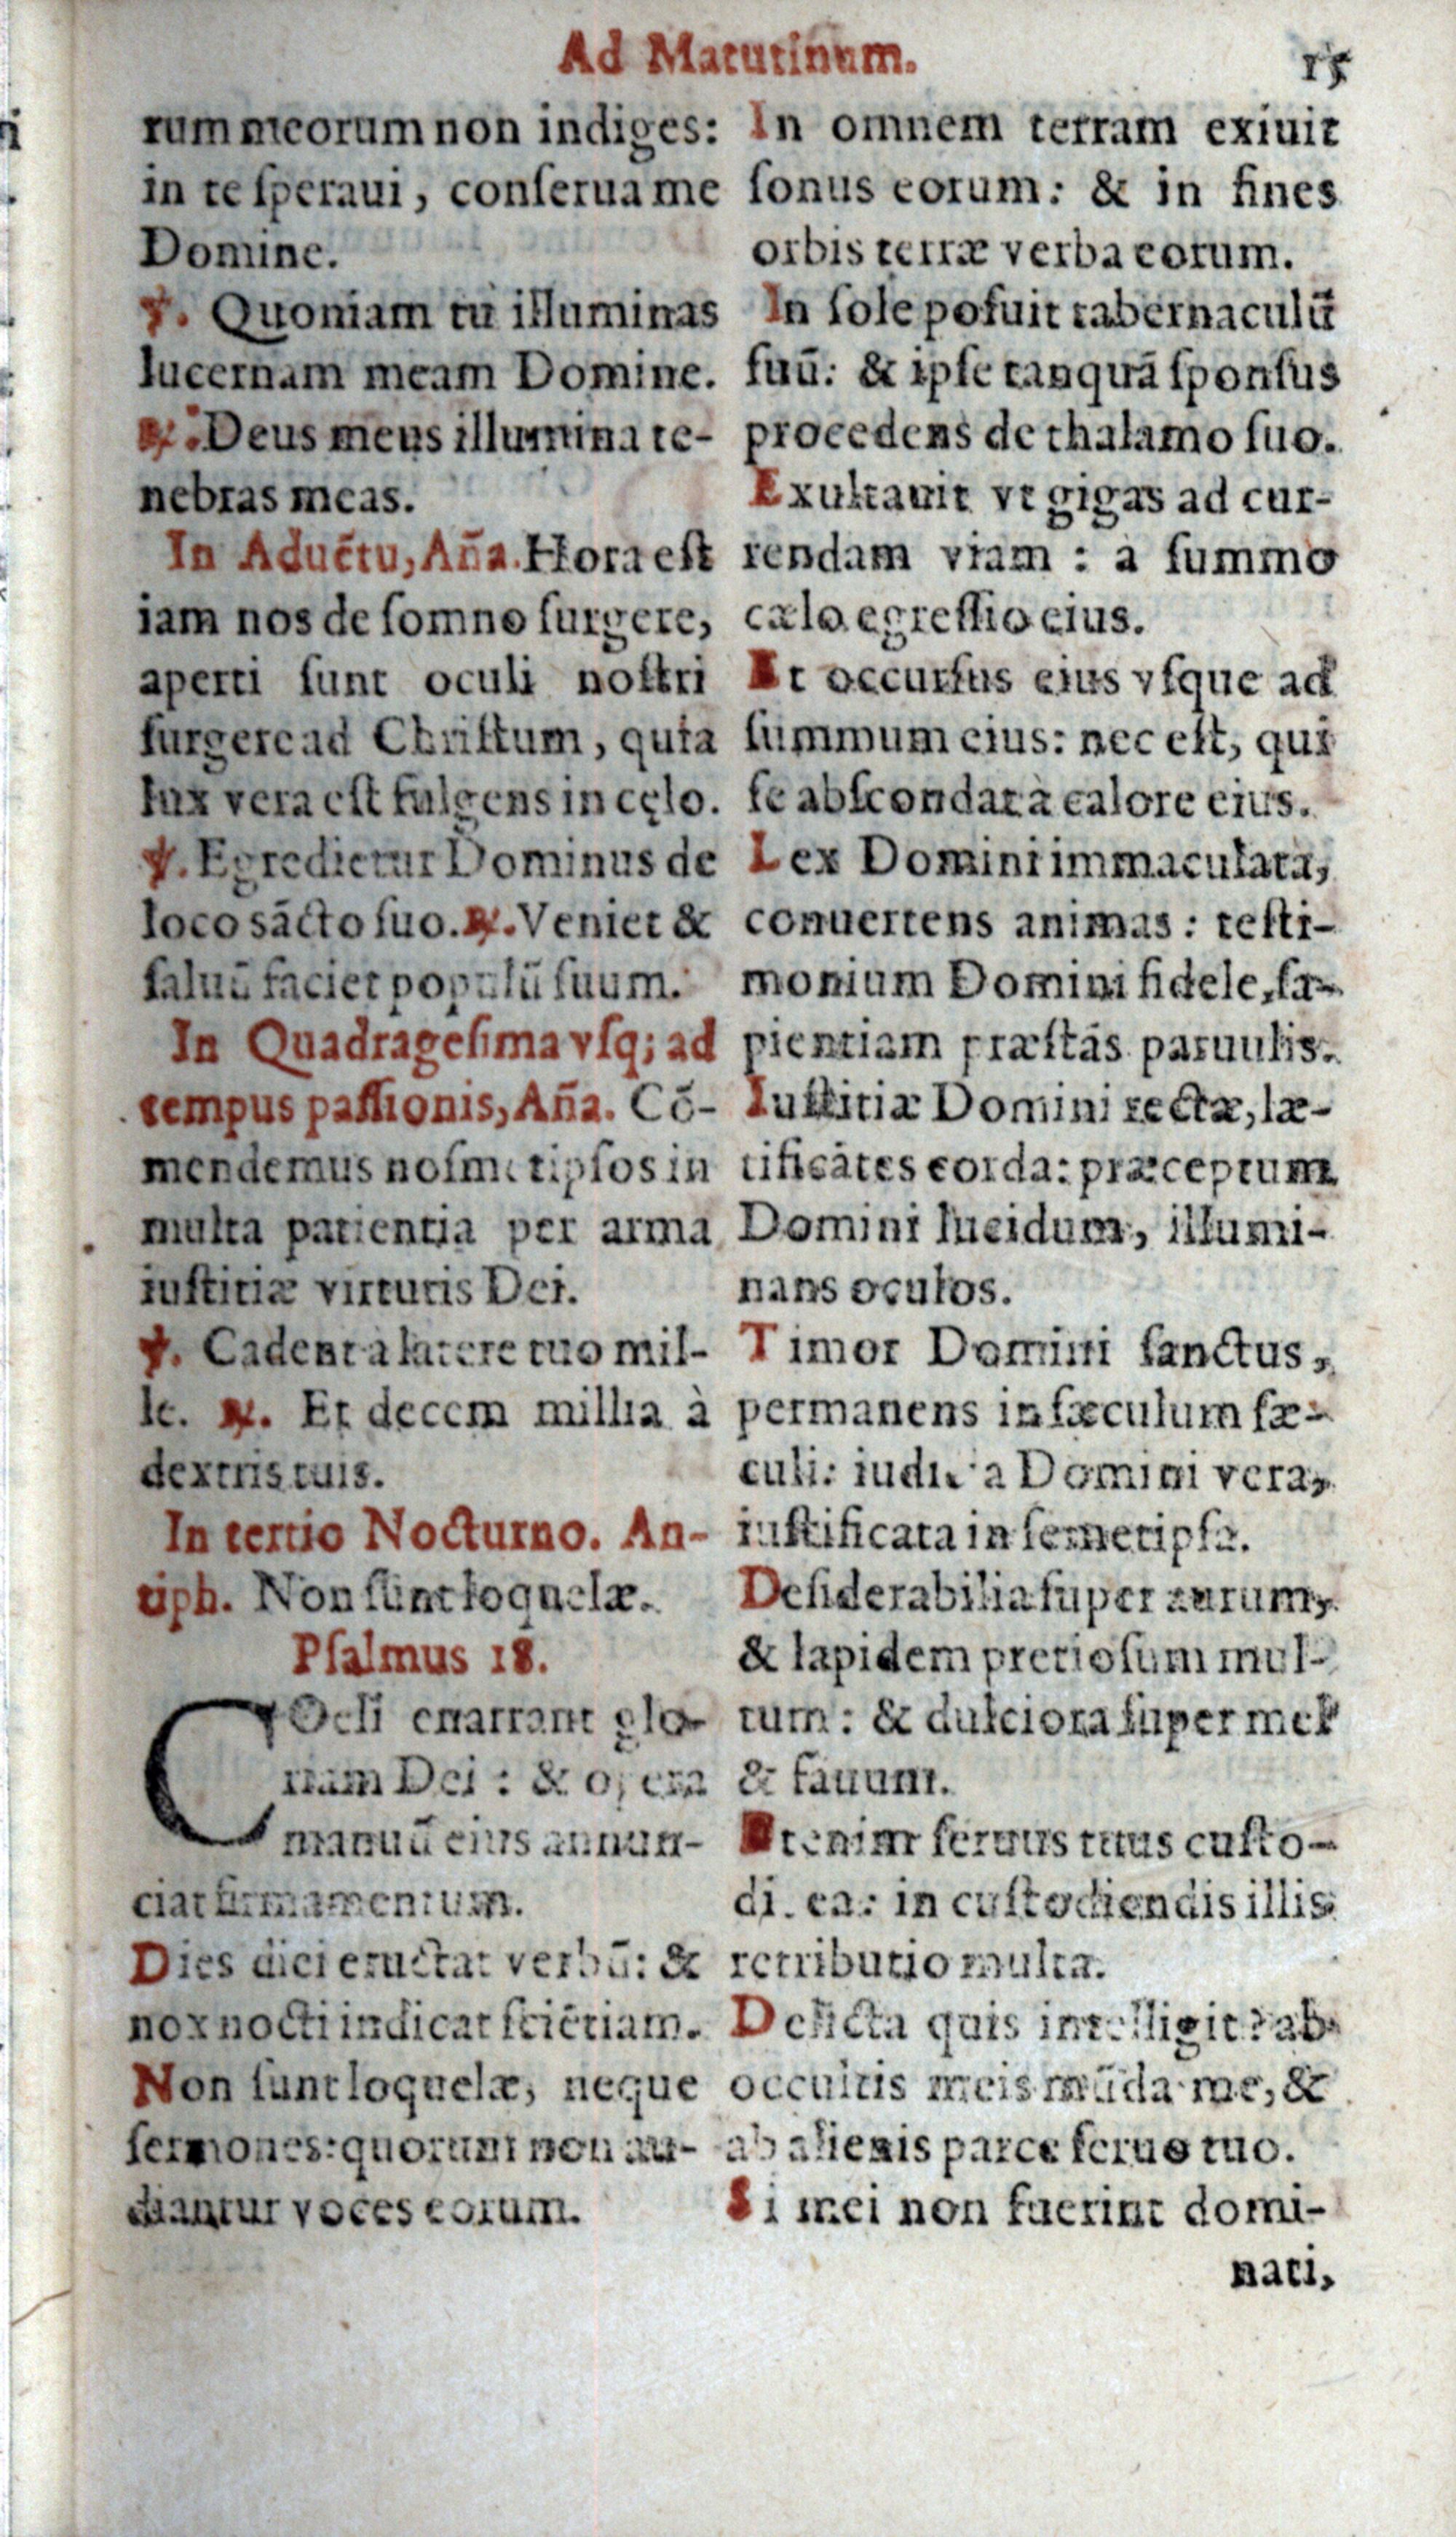 Ad Matutinum.
15
rum meorum non indiges:
in te ſperaui, conſerua me
Domine.
℣. Quoniam tu illuminas
lucernam meam Domine.
℟. Deus meus illumina te-
nebras meas.
In Aduẽtu, Añа. Hora eſt
iam nos de ſomno ſurgere,
aperti ſunt oculi noſtri
ſurgere ad Chriſtum, quia
lux vera eſt fulgens in cęlo.
℣. Egredietur Dominus de
loco sācto ſuo. ℟. Veniet &
ſaluū faciet populū ſuum.
In Quadrageſima vſq; ad
tempus paſſionis, Aña. Cō-
mendemus noſmetipſos in
multa patientia per arma
iuſtitiæ virtutis Dei.
℣. Cadent a latere tuo mil-
le. ℟. Et decem millia à
dextris tuis.
In tertio Nocturno. An-
tiph. Non ſunt loquelæ.
Pſalmus 18.
COeli enarrant glo-
riam Dei : & opera
manuū eius annun-
ciat firmamentum.
Dies diei eructat verbū: &
nox nocti indicat ſciētiam.
Non ſunt loquelæ, neque
ſermones: quorum non au-
diantur voces eorum.
In omnem terram exiuit
ſonus eorum: & in fines
orbis terræ verba eorum.
In ſole poſuit tabernaculū
ſuū: & ipſe tanquā ſponſus
procedens de thalamo ſuo.
Exultauit vt gigas ad cur-
rendam viam : à ſummo
cælo egreſſio eius.
Et occurſus eius vſque ad
ſummum eius: nec eſt, qui
ſe abſcondat à calore eius.
Lex Domini immaculata,
conuertens animas : teſti-
monium Domini fidele, ſa-
pientiam præſtās paruulis.
Iuſtitiæ Domini rectæ, læ-
tificātes corda: præceptum
Domini lucidum, illumi-
nans oculos.
Timor Domini ſanctus,
permanens in ſæculum ſæ-
culi: iudicia Domini vera,
iuſtificata in ſemetipſa.
Deſiderabilia ſuper aurum,
& lapidem pretioſum mul-
tum : & dulciora ſuper mel
& fauum.
Etenim ſeruus tuus cuſto-
dit ea: in cuſtodiendis illis
retributio multa.
Delicta quis intelligit? ab
occultis meis mūda me, &
ab alienis parce ſeruo tuo.
Si mei non fuerint domi-
nati,